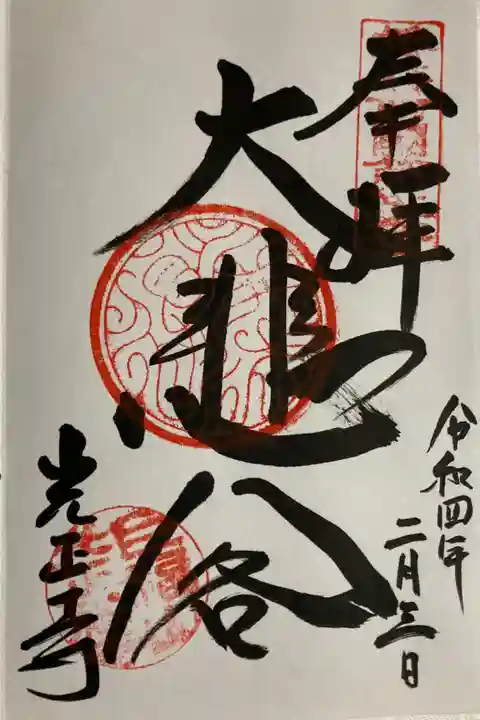 奉拝
令和四年
二月三日
大悲谷
光正寺